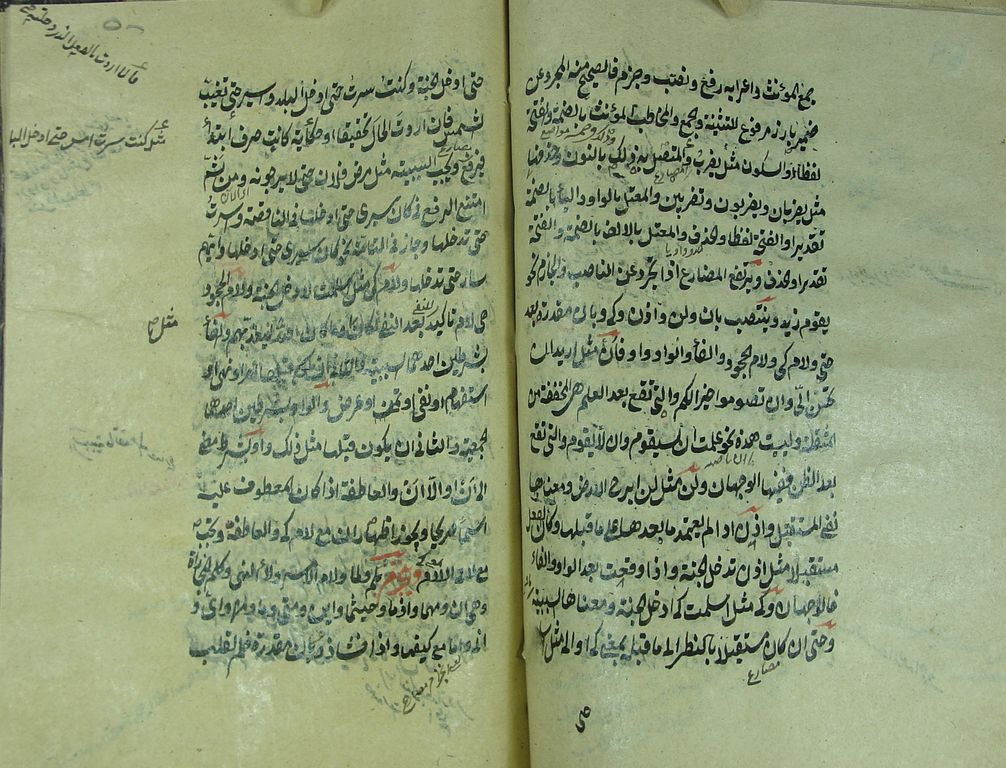 جمع المؤنث واعرابه رفع ونصب وجزم فالصحيح منه المجرد عن
ضمير بارز مرفوع للتثنية والجمع والمخاطب المؤنث بالضمة والفتحة
لفظا والسكون مثل يضرب والمتصل به ذلك بالنون وحذفها
مثل يضربان ويضربون وتضربين والمعتل بالواو والياء بالضمة
تقديرا والفتحة لفظا والحذف والمعتل بالالف بالضمة والفتحة
تقديرا والحذف ويرتفع المضارع اذا تجرد عن الناصب والجازم نحو
يقوم زيد وينتصب بان ولن واذن وكي وبان مقدرة بعد
حتى ولام كي ولام الجحود والفاء والواو واو فان مثل اريد ان
تحسن الي وان تصوموا خير لكم والتي تقع بعد العلم هي المخففة من
المثقلة وليست هذه نحو علمت ان سيقوم وان لا يقوم والتي تقع
بعد الظن ففيها الوجهان ولن مثل لن ابرح الارض ومعناها
نفي المستقبل واذن اذا لم يعتمد ما بعدها على ما قبلها وكان الفعل
مستقبلا مثل اذن تدخل الجنة واذا وقعت بعد الواو والفاء
فالوجهان وكي مثل اسلمت كي ادخل الجنة ومعناها السببية
وحتى ان كان مستقبلا بالنظر الى ما قبله بمعنى كي او الى مثل
مضارع
حتى ادخل الجنة وكنت سرت حتى ادخل البلد واسير حتى تغيب
الشمس فان اردت الحال تحقيقا او حكاية كانت حرف ابتداء
فيرفع وتجب السببية مثل مرض فلان حتى لا يرجونه ومن ثم
امتنع الرفع في كان سيري حتى ادخلها في الناقصة واسرت
حتى تدخلها وجاز في التامة كان سيري حتى ادخلها وايهم
سار حتى تدخلها ولام كي مثل اسلمت لادخل الجنة ولام الجحود
هي لام تاكيد بعد النفي لكان وما كان الله ليعذبهم والفاء
بشرطين احدهما السببية والثاني امر او نهي او
استفهام او نفي او تمن او عرض والواو بشرطين احدهما
الجمعية والثاني ان يكون قبلها مثل ذلك واو بشرط معنى
الى ان او الا ان والعاطفة اذا كان المعطوف عليه
اسما صريحا ويجوز اظهار ان مع لام كي والعاطفة ويجب
مع لا في اللام وينجزم بلم ولما ولام الامر ولا في النهي وكلم المجازاة
وهي ان ومهما واذما وحيثما واين ومتى وما ومن واي و
انى واما مع كيفما واذا فشاذ وبان مقدرة فلم لقلب